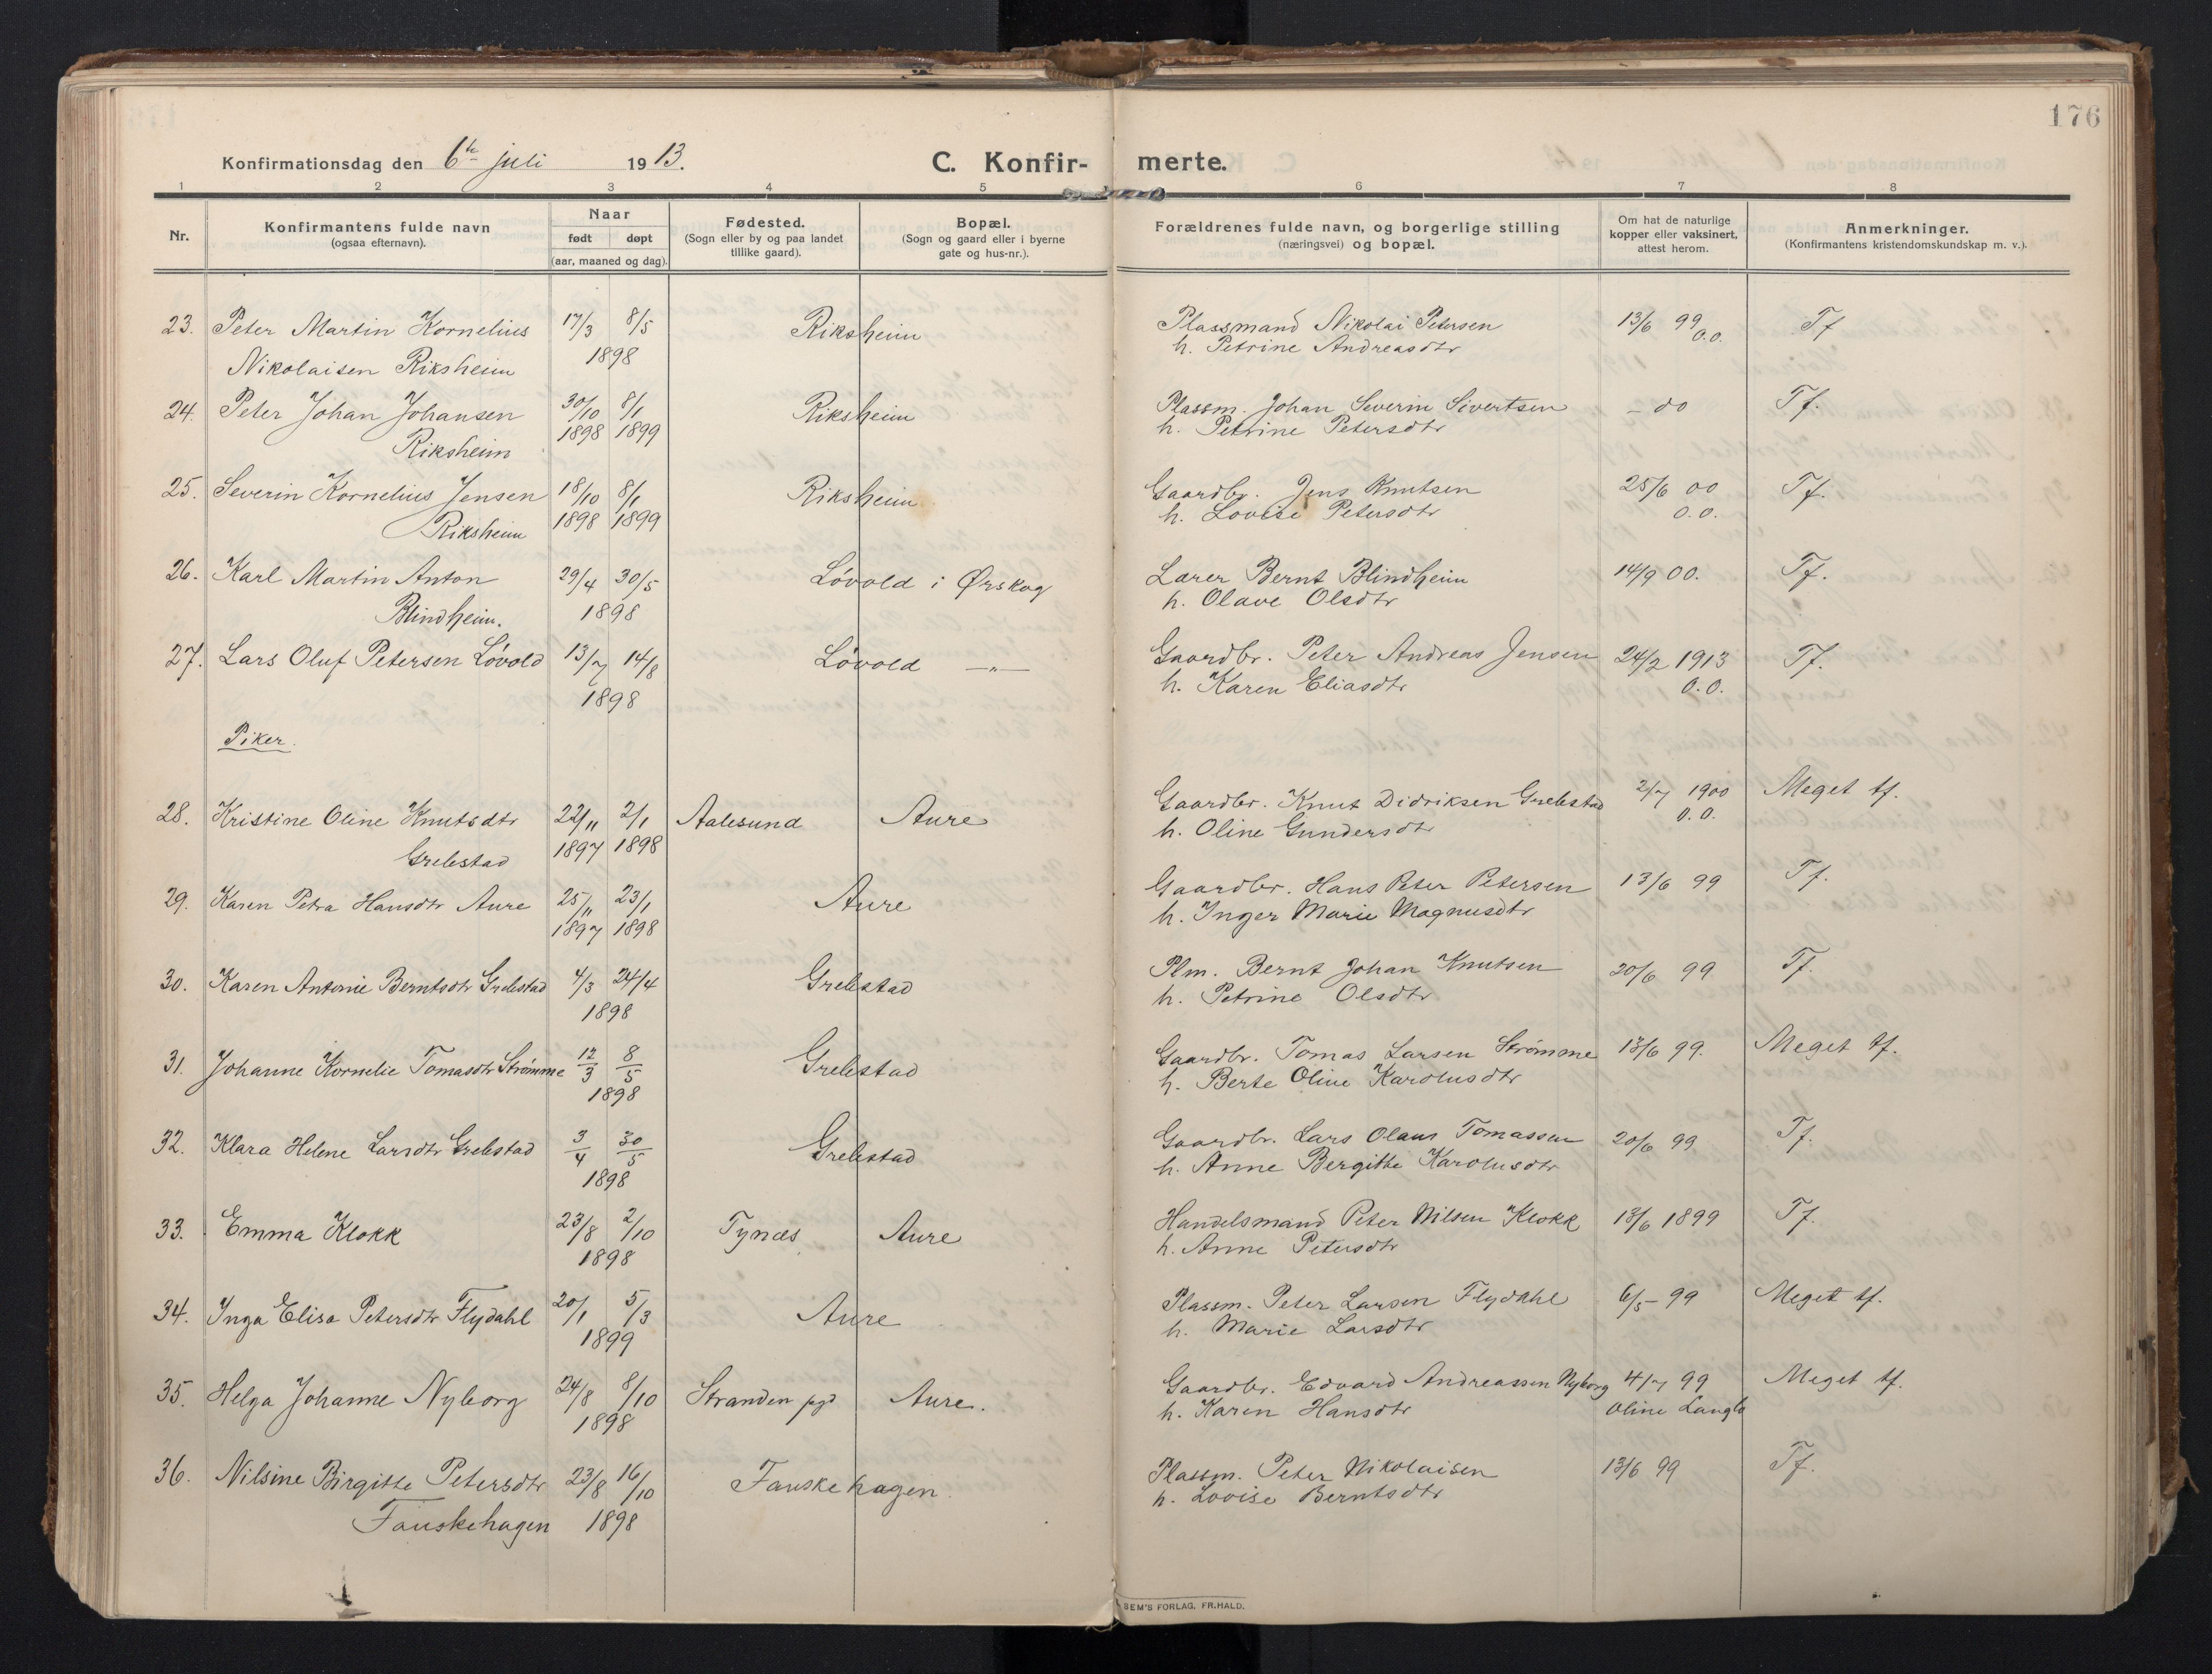 176
Konfirmationsdag den 6te juli 1913.
C. Konfirmerte.
1 2 3 4 5 6 7 8
Nr.
Konfirmantens fulde navn
(ogsaa efternavn).
Naar
født døpt
(aar, maaned og dag).
Fødested.
(Sogn eller by og paa landet
tillike gaard).
Bopæl.
(Sogn og gaard eller i byerne
gate og hus-nr.).
Forældrenes fulde navn, og borgerlige stilling
(næringsvei) og bopæl.
Om hat de naturlige
kopper eller vaksinert,
attest herom.
Anmerkninger.
(Konfirmantens kristendomskundskap m. v.).
23. Peter Martin Kornelius 17/3 8/5 Riksheim Plassmand Nikolai Petersen 13/6 99 Tf
Nikolaisen Riksheim 1898 h. Petrine Andreasdtr O.O.
24. Peter Johan Johansen 30/10 8/1 Riksheim Plassm. Johan Severin Sivertsen - do Tf.
Riksheim 1898 1899 h. Petrine Petersdtr
25. Severin Kornelius Jensen 18/10 8/1 Riksheim Gaardbr. Jens Knutsen 25/6 00 Tf.
Riksheim 1898 1899 h. Lovise Petersdtr O.O.
26. Karl Martin Anton 29/4 30/5 Løvold i Ørskog Lærer Bernt Blindheim 14/9 00. Tf.
Blindheim. 1898 h. Olave Olsdtr
27. Lars Oluf Petersen Løvold 13/7 14/8 Løvold -"- Gaardbr. Peter Andreas Jensen 24/2 1913 Tf.
1898 h. Karen Eliasdtr O.O.
Piker.
28. Kristine Oline Knutsdtr 22/11 2/1 Aalesund Aure Gaardbr. Knut Didriksen Grebstad 2/7 1900 Meget tf.
Grebstad 1897 1898 h. Oline Gundersdtr O.O.
29. Karen Petra Hansdtr Aure 25/11 23/1 Aure Gaardbr. Hans Peter Petersen 13/6 99 Tf.
1897 1898 h. Inger Marie Magnusdtr
30. Karen Antonie Berntsdtr Grebstad 4/3 24/4 Grebstad Plm. Bernt Johan Knutsen 20/6 99 Tf.
1898 h. Petrine Olsdtr
31. Johanne Kornelie Tomasdtr Strømme 12/3 8/5 Grebstad Gaardbr. Tomas Larsen Strømme 13/6 99. Meget tf.
1898 h. Berte Oline Karolusdtr
32. Klara Helene Larsdtr Grebstad 3/4 30/5 Grebstad Gaardbr. Lars Olaus Tomassen 20/6 99. Tf.
1898 h. Anne Bergitte Karolusdtr
33. Emma Klokk 23/8 2/10 Tynæs Aure Handelsmand Peter Nilsen Klokk 13/6 1899 Tf.
1898 h. Anne Petersdtr
34. Inga Elisa Petersdtr Flydahl 20/1 5/3 Aure Plassm. Peter Larsen Flydahl 6/5 - 99 Meget tf.
1899 h. Marie Larsdtr
35. Helga Johanne Nyborg 24/8 8/10 Stranden pgd Aure. Gaardbr. Edvard Andreassen Nyborg 4/7 99 Meget tf.
1898 h. Karen Hansdtr Oline Langlo
36. Nilsine Birgitte Petersdtr 23/8 16/10 Fauskehagen. Plassm. Peter Nikolaisen 13/6 99 Tf.
Fauskehagen 1898 h. Lovise Berntsdtr
SEM'S FORLAG, FR.HALD.